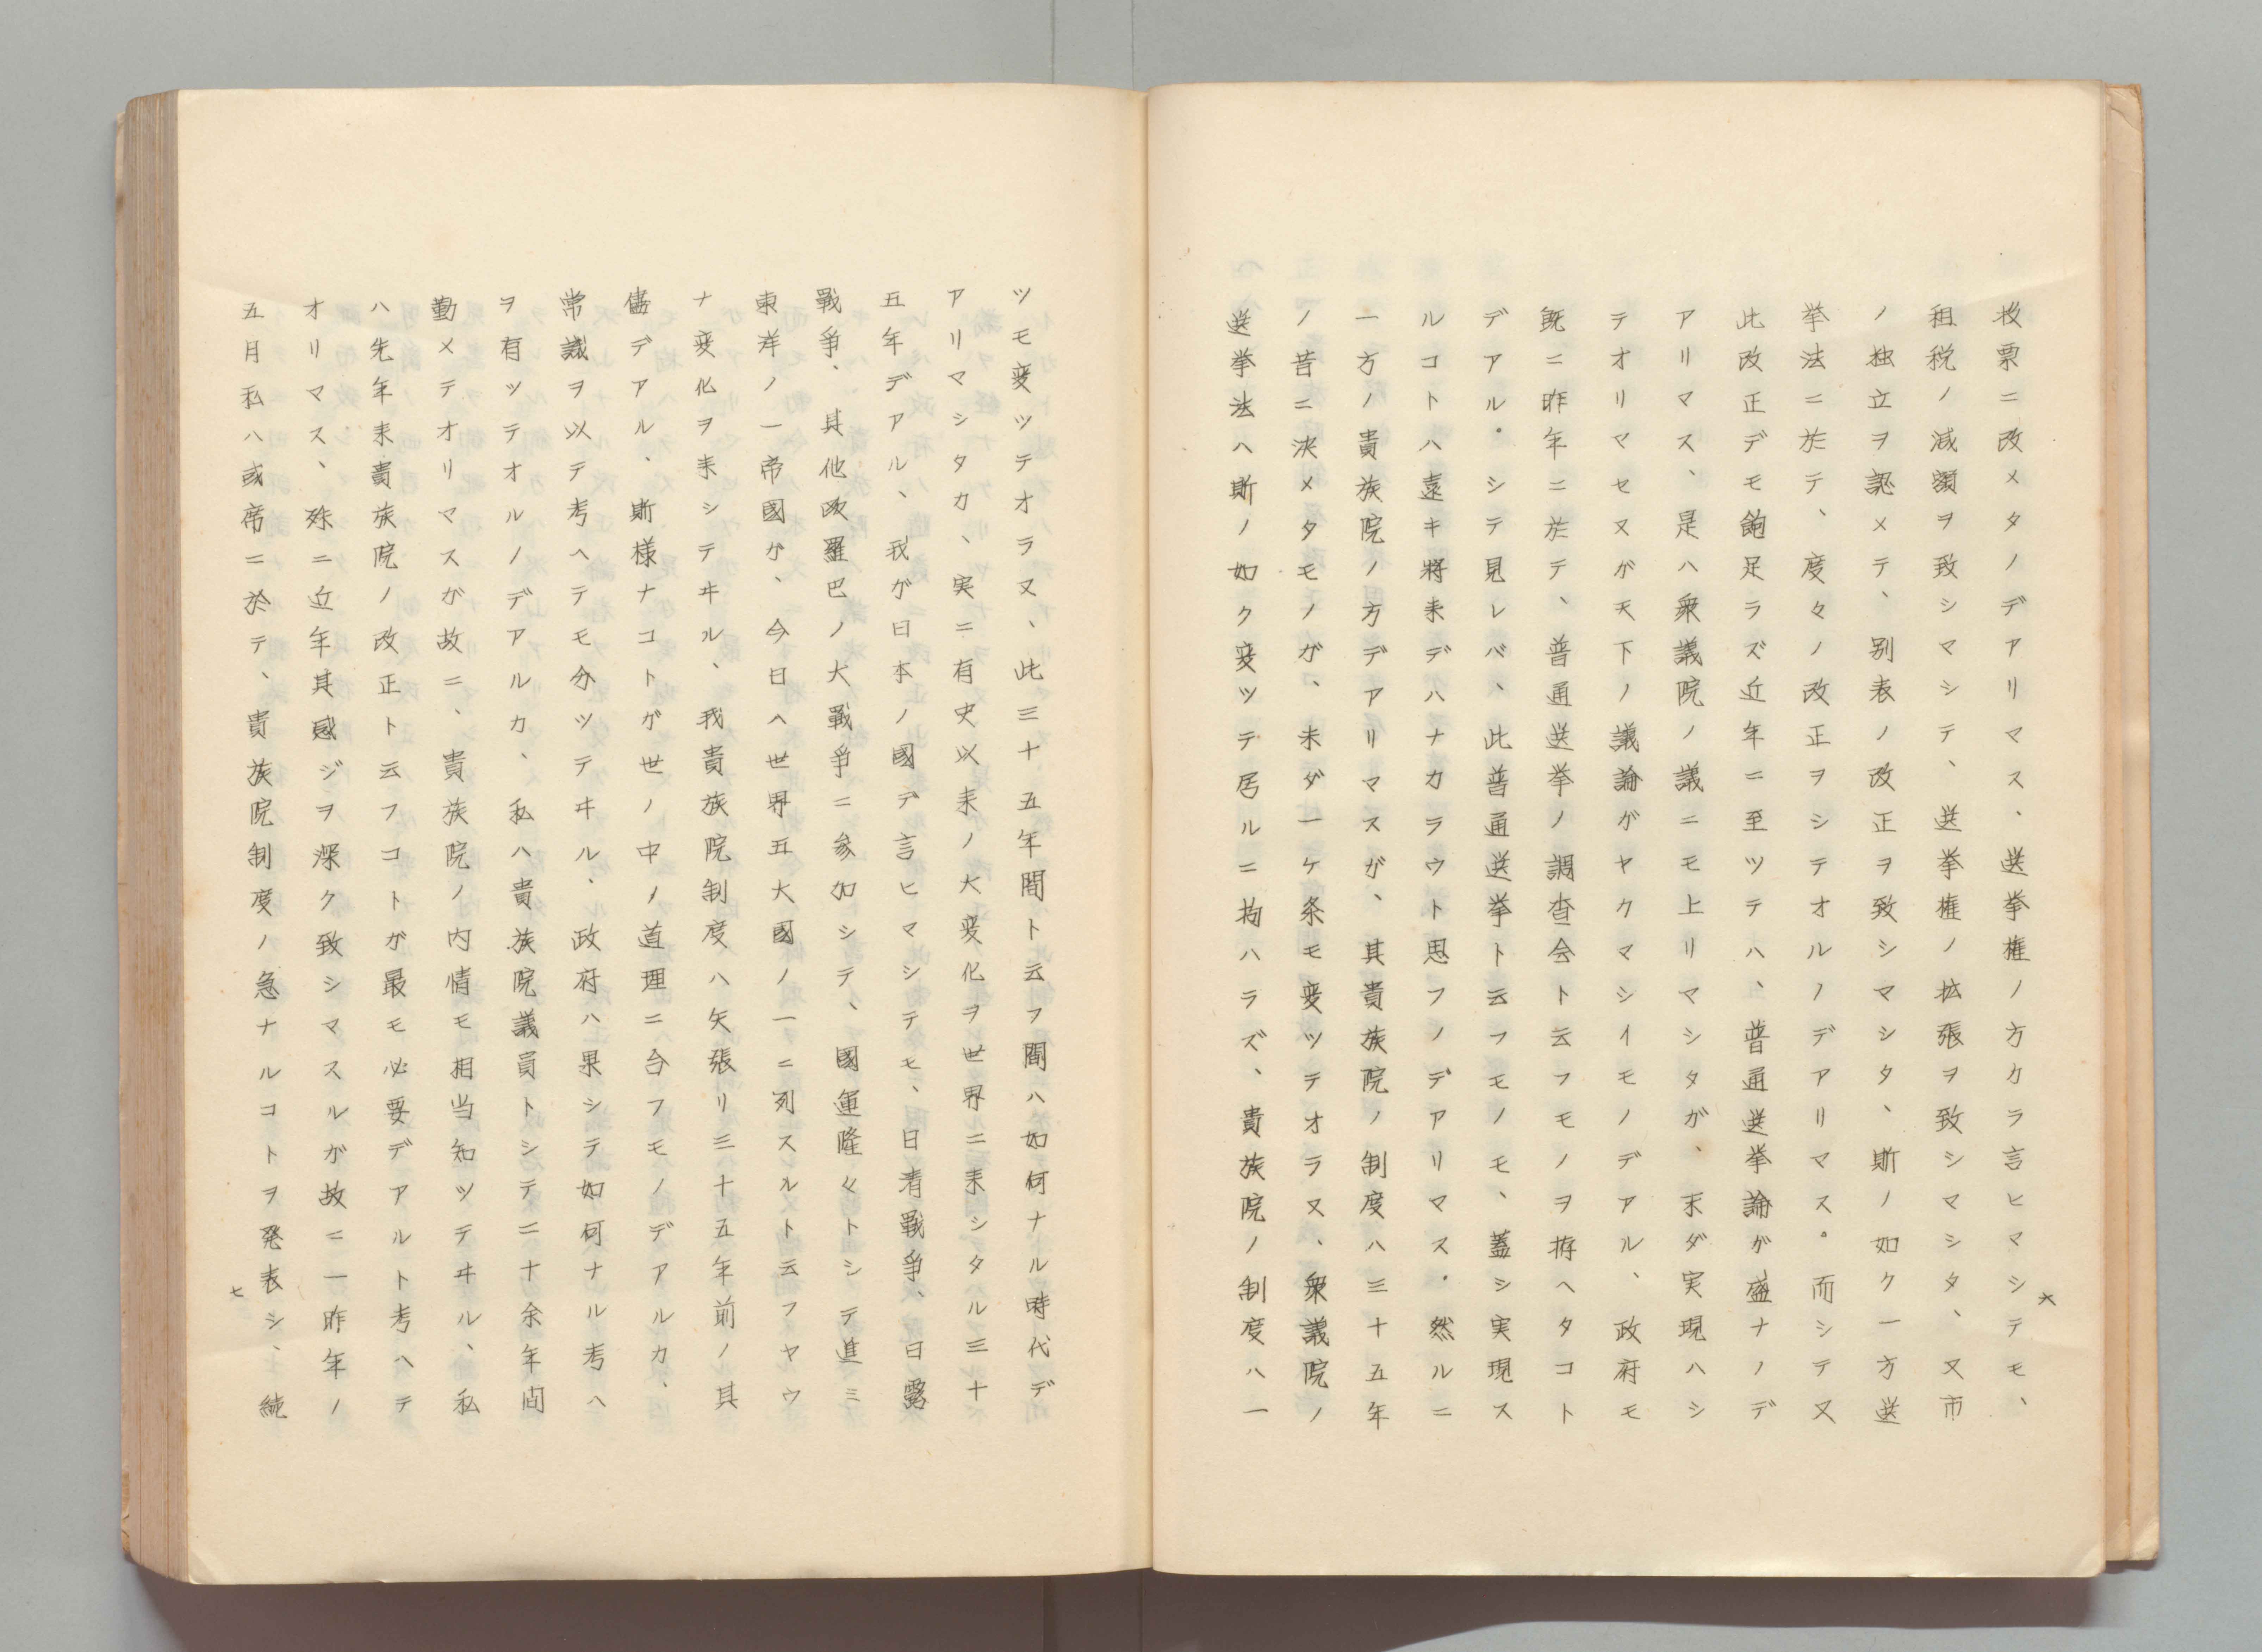 投票ニ改メタノデアリマス、選挙権ノ方カラ言ヒマシテモ、
租税ノ減額ヲ致シマシテ、選挙権ノ拡張ヲ致シマシタ、又市
ノ独立ヲ認メテ、別表ノ改正ヲ致シマシタ、斯ノ如ク一方選
挙法ニ於テ、度々ノ改正ヲシテオルノデアリマス。而シテ又
此改正デモ飽足ラズ近年ニ至ツテハ、普通選挙論が盛ナノデ
アリマス、是ハ衆議院ノ議ニモ上リマシタが、末ダ実現ハシ
テオリマセヌが天下ノ議論がヤクマシイモノデアル、政府モ
既ニ昨年ニ於テ、普通選挙ノ調査会ト云フモノヲ拵ヘタコト
デアル。シテ見レバ、此普通選挙ト云フモノモ、蓋シ実現ス
ルコトハ遠キ将来デハナカラウト思フノデアリマス。然ルニ
一方ノ貴族院ノ方デアリマスが、其貴族院ノ制度ハ三十五年
ノ昔ニ決メタモノが、未ダ一ケ条モ変ツテオラヌ、衆議院ノ
選挙法ヘ斯ノ如ク変ツテ居ルニ拘ハラズ、貴族院ノ制度ハ一
六
ツモ変ツテオラヌ、此三十五年間ト云フ間ハ如何ナル時代デ
アリマシタカ、実ニ有史以来ノ大変化ヲ世界ニ来シタル三十
五年デアル、我が日本ノ國デ言ヒマシテモ、日清戰爭、日露
戰爭、其他欧羅巴ノ大戰爭ニ参加シテ、國運隆々トシテ進ミ
東洋ノ一帝國が、今日ヘ世界五大國ノ一ニ列スルト云フヤウ
ナ変化ヲ来シテヰル、我貴族院制度ハ矢張リ三十五年前ノ其
儘デアル、斯様ナコトが世ノ中ノ道理ニ合フモノデアルカ、
常識ヲ以テ考ヘテモ分ツテヰル、政府ハ果シテ如何ナル考ヘ
ヲ有ツテオルノデアルカ、私ハ貴族院議員トシテ二十余年間
勤メテオリマスが故ニ、貴族院ノ内情モ相当知ツテヰル、私
ハ先年来貴族院ノ改正ト云フコトが最モ必要デアルト考ヘテ
オリマス、殊ニ近年其感ジヲ深ク致シマスルが故ニ一昨年ノ
五月私ハ或席ニ於テ、貴族院制度ノ急ナルコトヲ発表シ、続
七